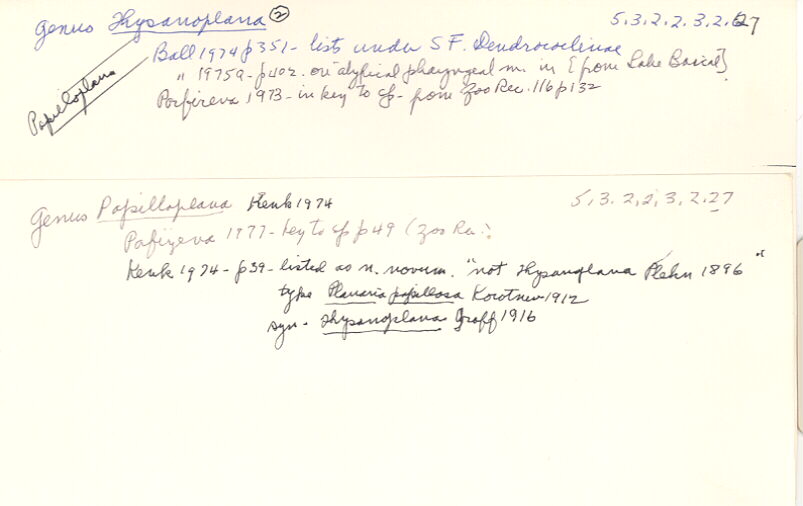 Genus Thysanoplana ② 5.3.2.2.3.2.27
Papilloplana
Ball 1974 p351 - lists under S F. Dendrocoelinae
" 1975a - p402. on atypical pharyngeal m. in [from Lake Baical]
Porfireva 1973 - in key to sp - from Zoo Rec. 116 p132
Genus Papilloplana Kenk 1974 5.3.2.2.3.2.27
Pofizeva 1977 - key to sp p49 (Zoo Rec.
Kenk 1974 - p39 - listed as n. novum. "not Thysanoplana Plehn 1896"
type Planaria papillosa Korotnev 1912
syn. - Thysanoplana Graff 1916